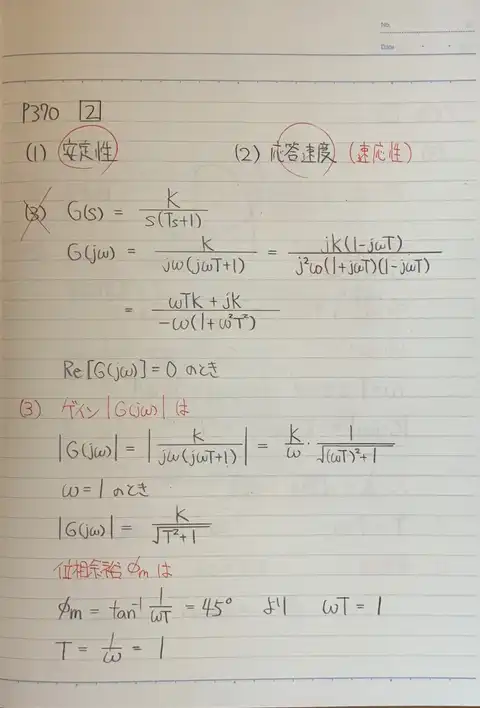 No.
Date
P370 2
(1) 安定性 (2) 応答速度 (速応性)
(3) G(s) = K / s(Ts+1)
G(jω) = K / jω(jωT+1) = jK(1-jωT) / j²ω(1+jωT)(1-jωT)
= ωTK + jK / -ω(1+ω²T²)
Re[G(jω)] = 0 のとき
(3) ゲイン |G(jω)| は
|G(jω)| = |K / jω(jωT+1)| = K/ω · 1/√((ωT)²+1)
ω = 1 のとき
|G(jω)| = K / √(T²+1)
位相余裕 φm は
φm = tan⁻¹ 1/ωT = 45° より ωT = 1
T = 1/ω = 1